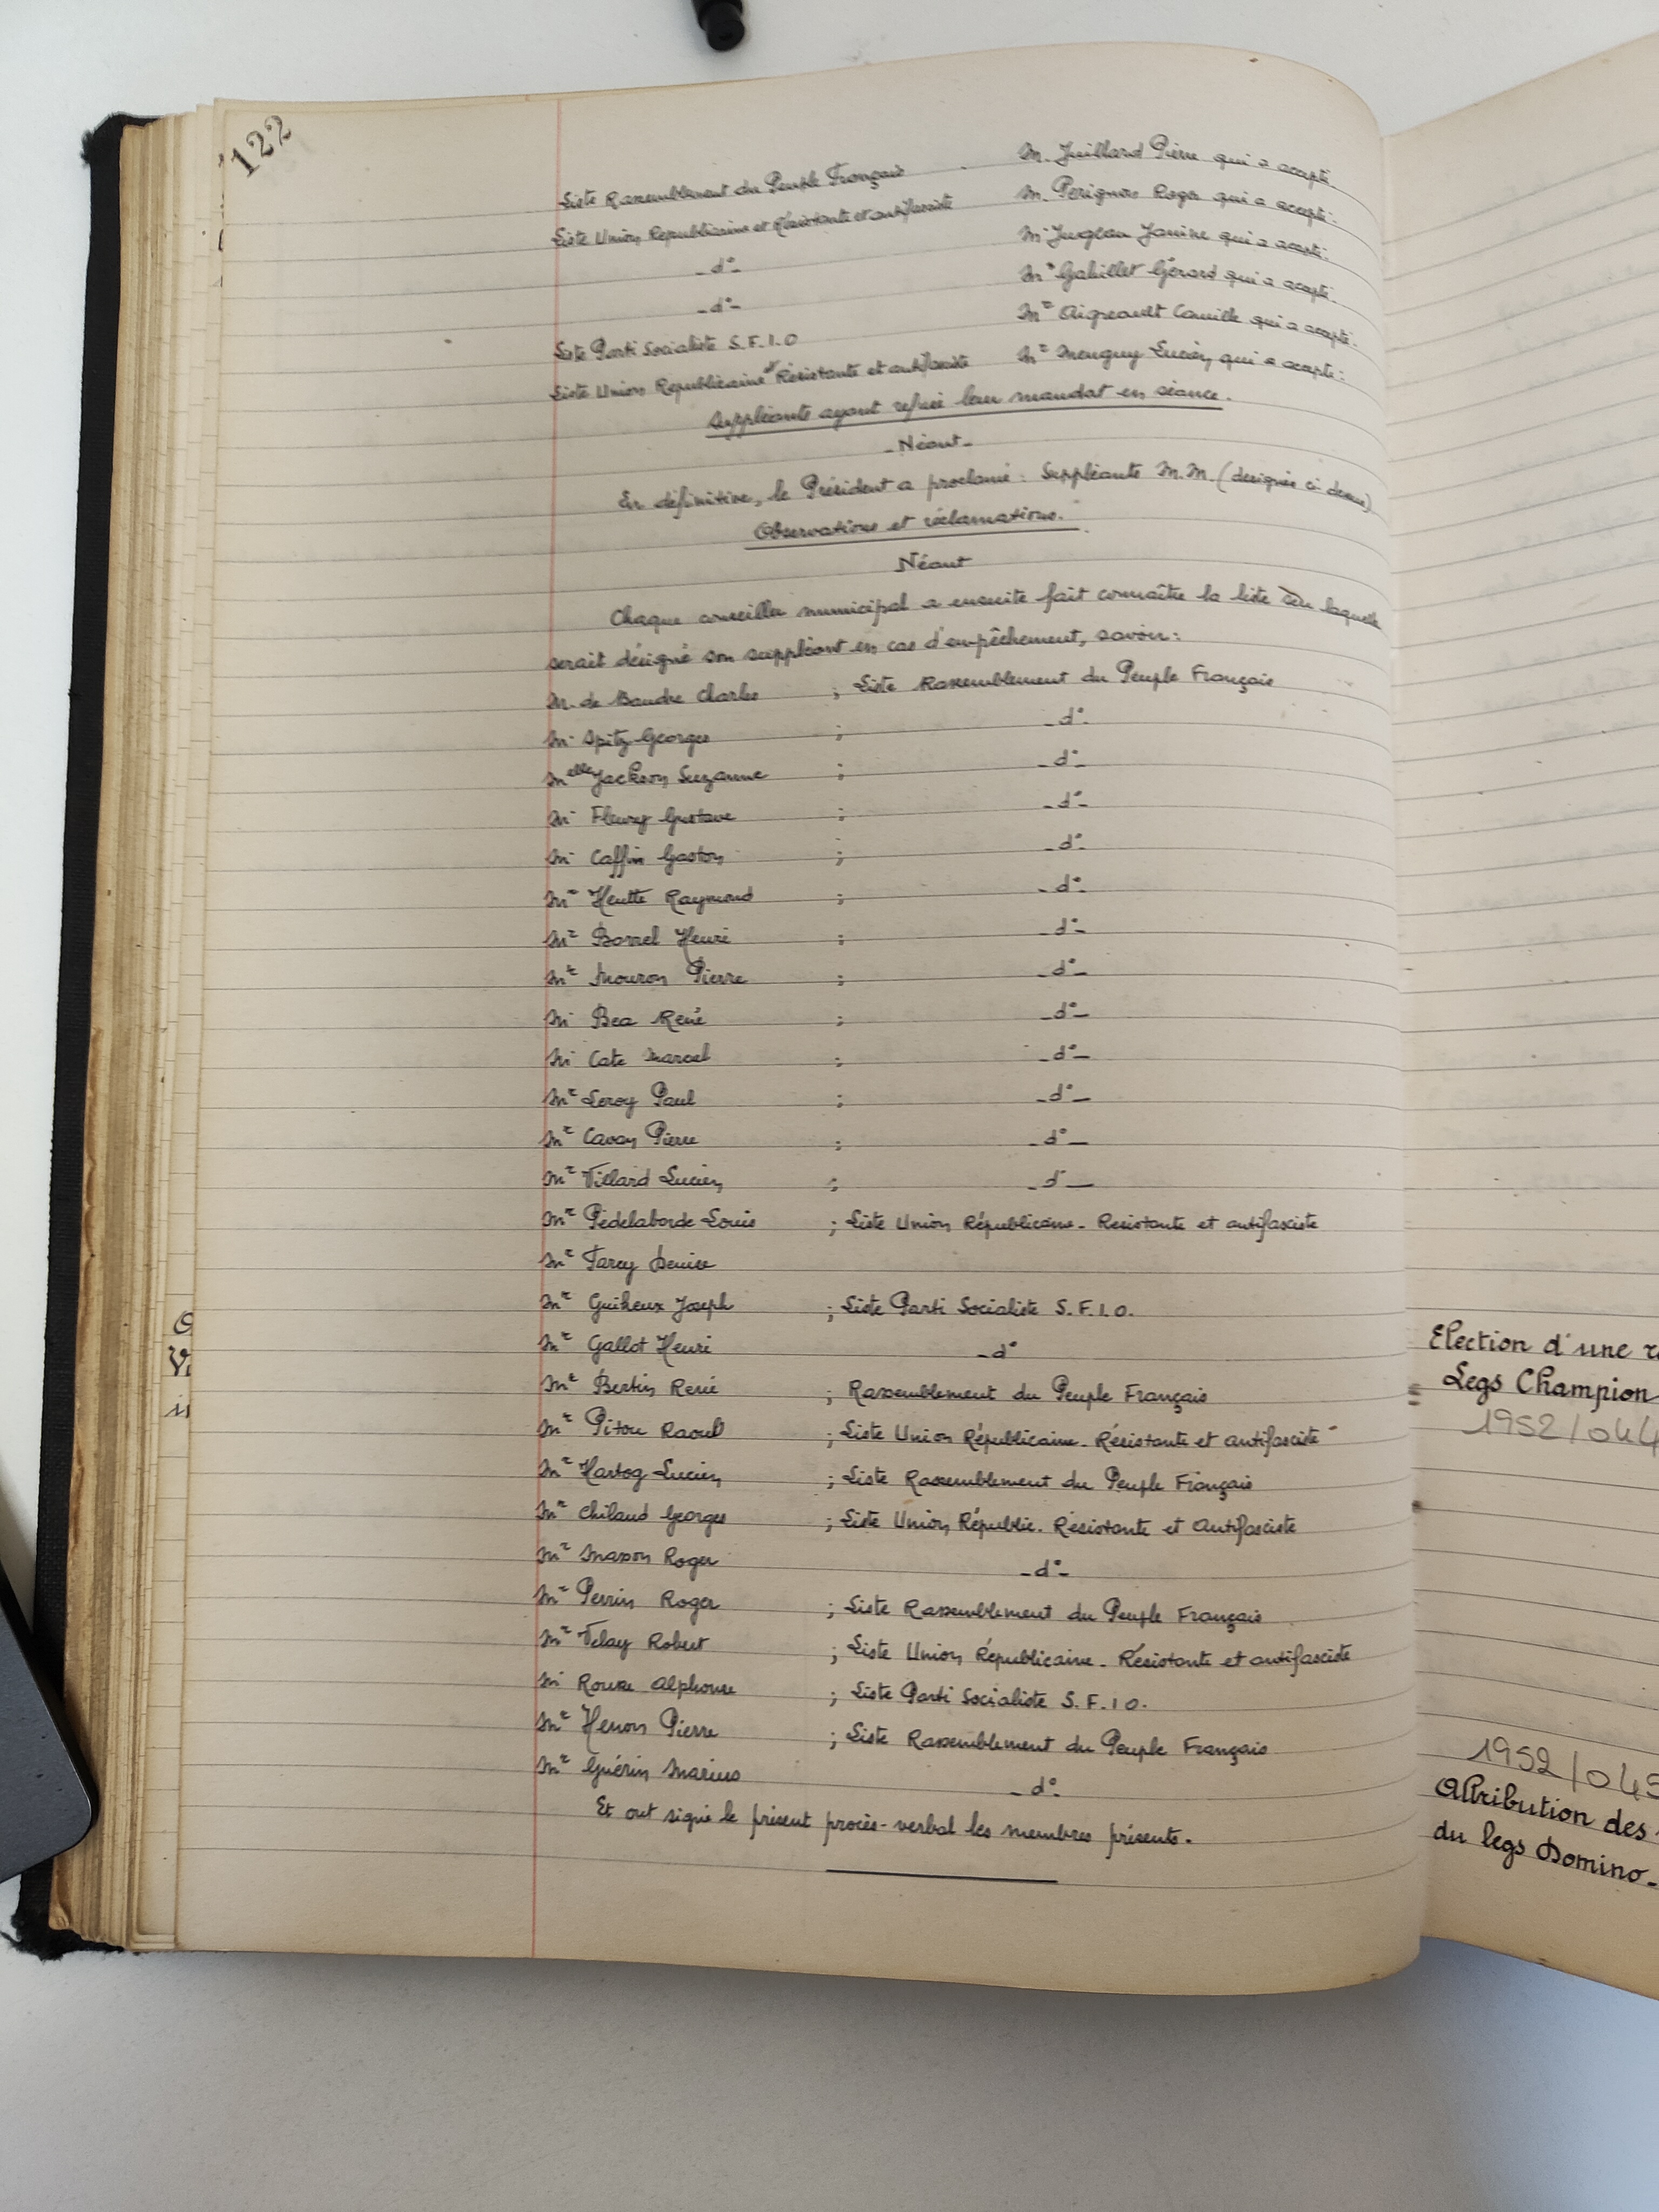 122
Liste Rassemblement du Peuple Français - M. Juillard Pierre qui a accepté.
Liste Union Républicaine et Résistante et antifasciste M. Perignon Roger qui a accepté.
-d°- Mr Jugeau Janine qui a accepté.
-d°- Mr Gabillet Gérard qui a accepté.
Liste Parti Socialiste S.F.I.O Mr Aigreault Camille qui a accepté.
Liste Union Republicaine et Résistante et antifasciste Mr Menguy Lucien qui a accepté:
Suppléants ayant refusé leur mandat en séance.
-Néant-
En définitive, le Président a proclamé: Suppléants M.M. (designés ci-dessus)
Observations et réclamations.
Néant
Chaque conseiller municipal a ensuite fait connaître la liste sur laquelle
serait désigné son suppléant en cas d'empêchement, savoir:
M. de Baudre Charles ; Liste Rassemblement du Peuple Français
Mr Spitz Georges ; -d°-
Melle Jackson Suzanne ; -d°-
Mr Fleury Gustave ; -d°-
Mr Caffin Gaston ; -d°-
Mr Heutte Raymond ; -d°-
Mr Borrel Henri ; -d°-
Mr Mouron Pierre ; -d°-
Mr Bea René ; -d°-
Mr Cate Marcel ; -d°-
Mr Leroy Paul ; -d°-
Mr Cavan Pierre ; -d°-
Mr Villard Lucien ; -d°-
Mr Pédelaborde Louis ; Liste Union Républicaine - Resistante et antifasciste
Mr Tarcy Denise
Mr Guiheux Joseph ; Liste Parti Socialiste S.F.I.O.
Mr Gallot Henri -d°
Mr Bertin René ; Rassemblement du Peuple Français
Mr Pitou Raoul ; Liste Union Républicaine - Résistante et antifasciste
Mr Hartog Lucien ; Liste Rassemblement du Peuple Français
Mr Chiland Georges ; Liste Union Républic. Résistante et Antifasciste
Mr Masson Roger -d°-
Mr Perrin Roger ; Liste Rassemblement du Peuple Français
Mr Velay Robert ; Liste Union Républicaine - Résistante et antifasciste
Mr Rouxe Alphonse ; Liste Parti Socialiste S.F.I.O.
Mr Henon Pierre ; Liste Rassemblement du Peuple Français
Mr Guérin Marius -d°-
Et ont signé le présent procès-verbal les membres présents.
Election d'une r
Legs Champion
1952/044
1952/045
Attribution des
du legs Domino-